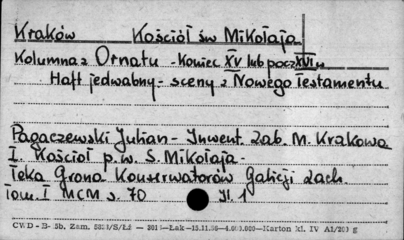 Kraków Kościół św Mikołaja
Kolumna z Ornatu - Koniec XV lub pocz XVI w
Haft jedwabny - sceny z Nowego Testamentu
Pagaczewski Julian - Inwent. Zab. M. Krakowa
I. Kościoł p.w. S. Mikołaja -
Teka Grona Konserwatorów Galicji Zach.
Tom. I MCM s. 70 Il. 1
CWD - B- 5b, Zam.